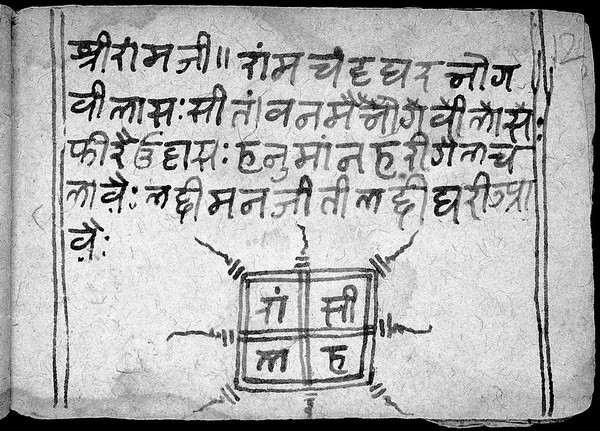 श्रीरांमजी॥ रांमचंद्र घर भोग
वीलासः सीतां वनमैं भोगै वीलासः
फीरै उदासः हनुमांन हरी गैल चं
लावैः लछीमनजी तीलछी घरी आ
वैः
रां सी
ल ह